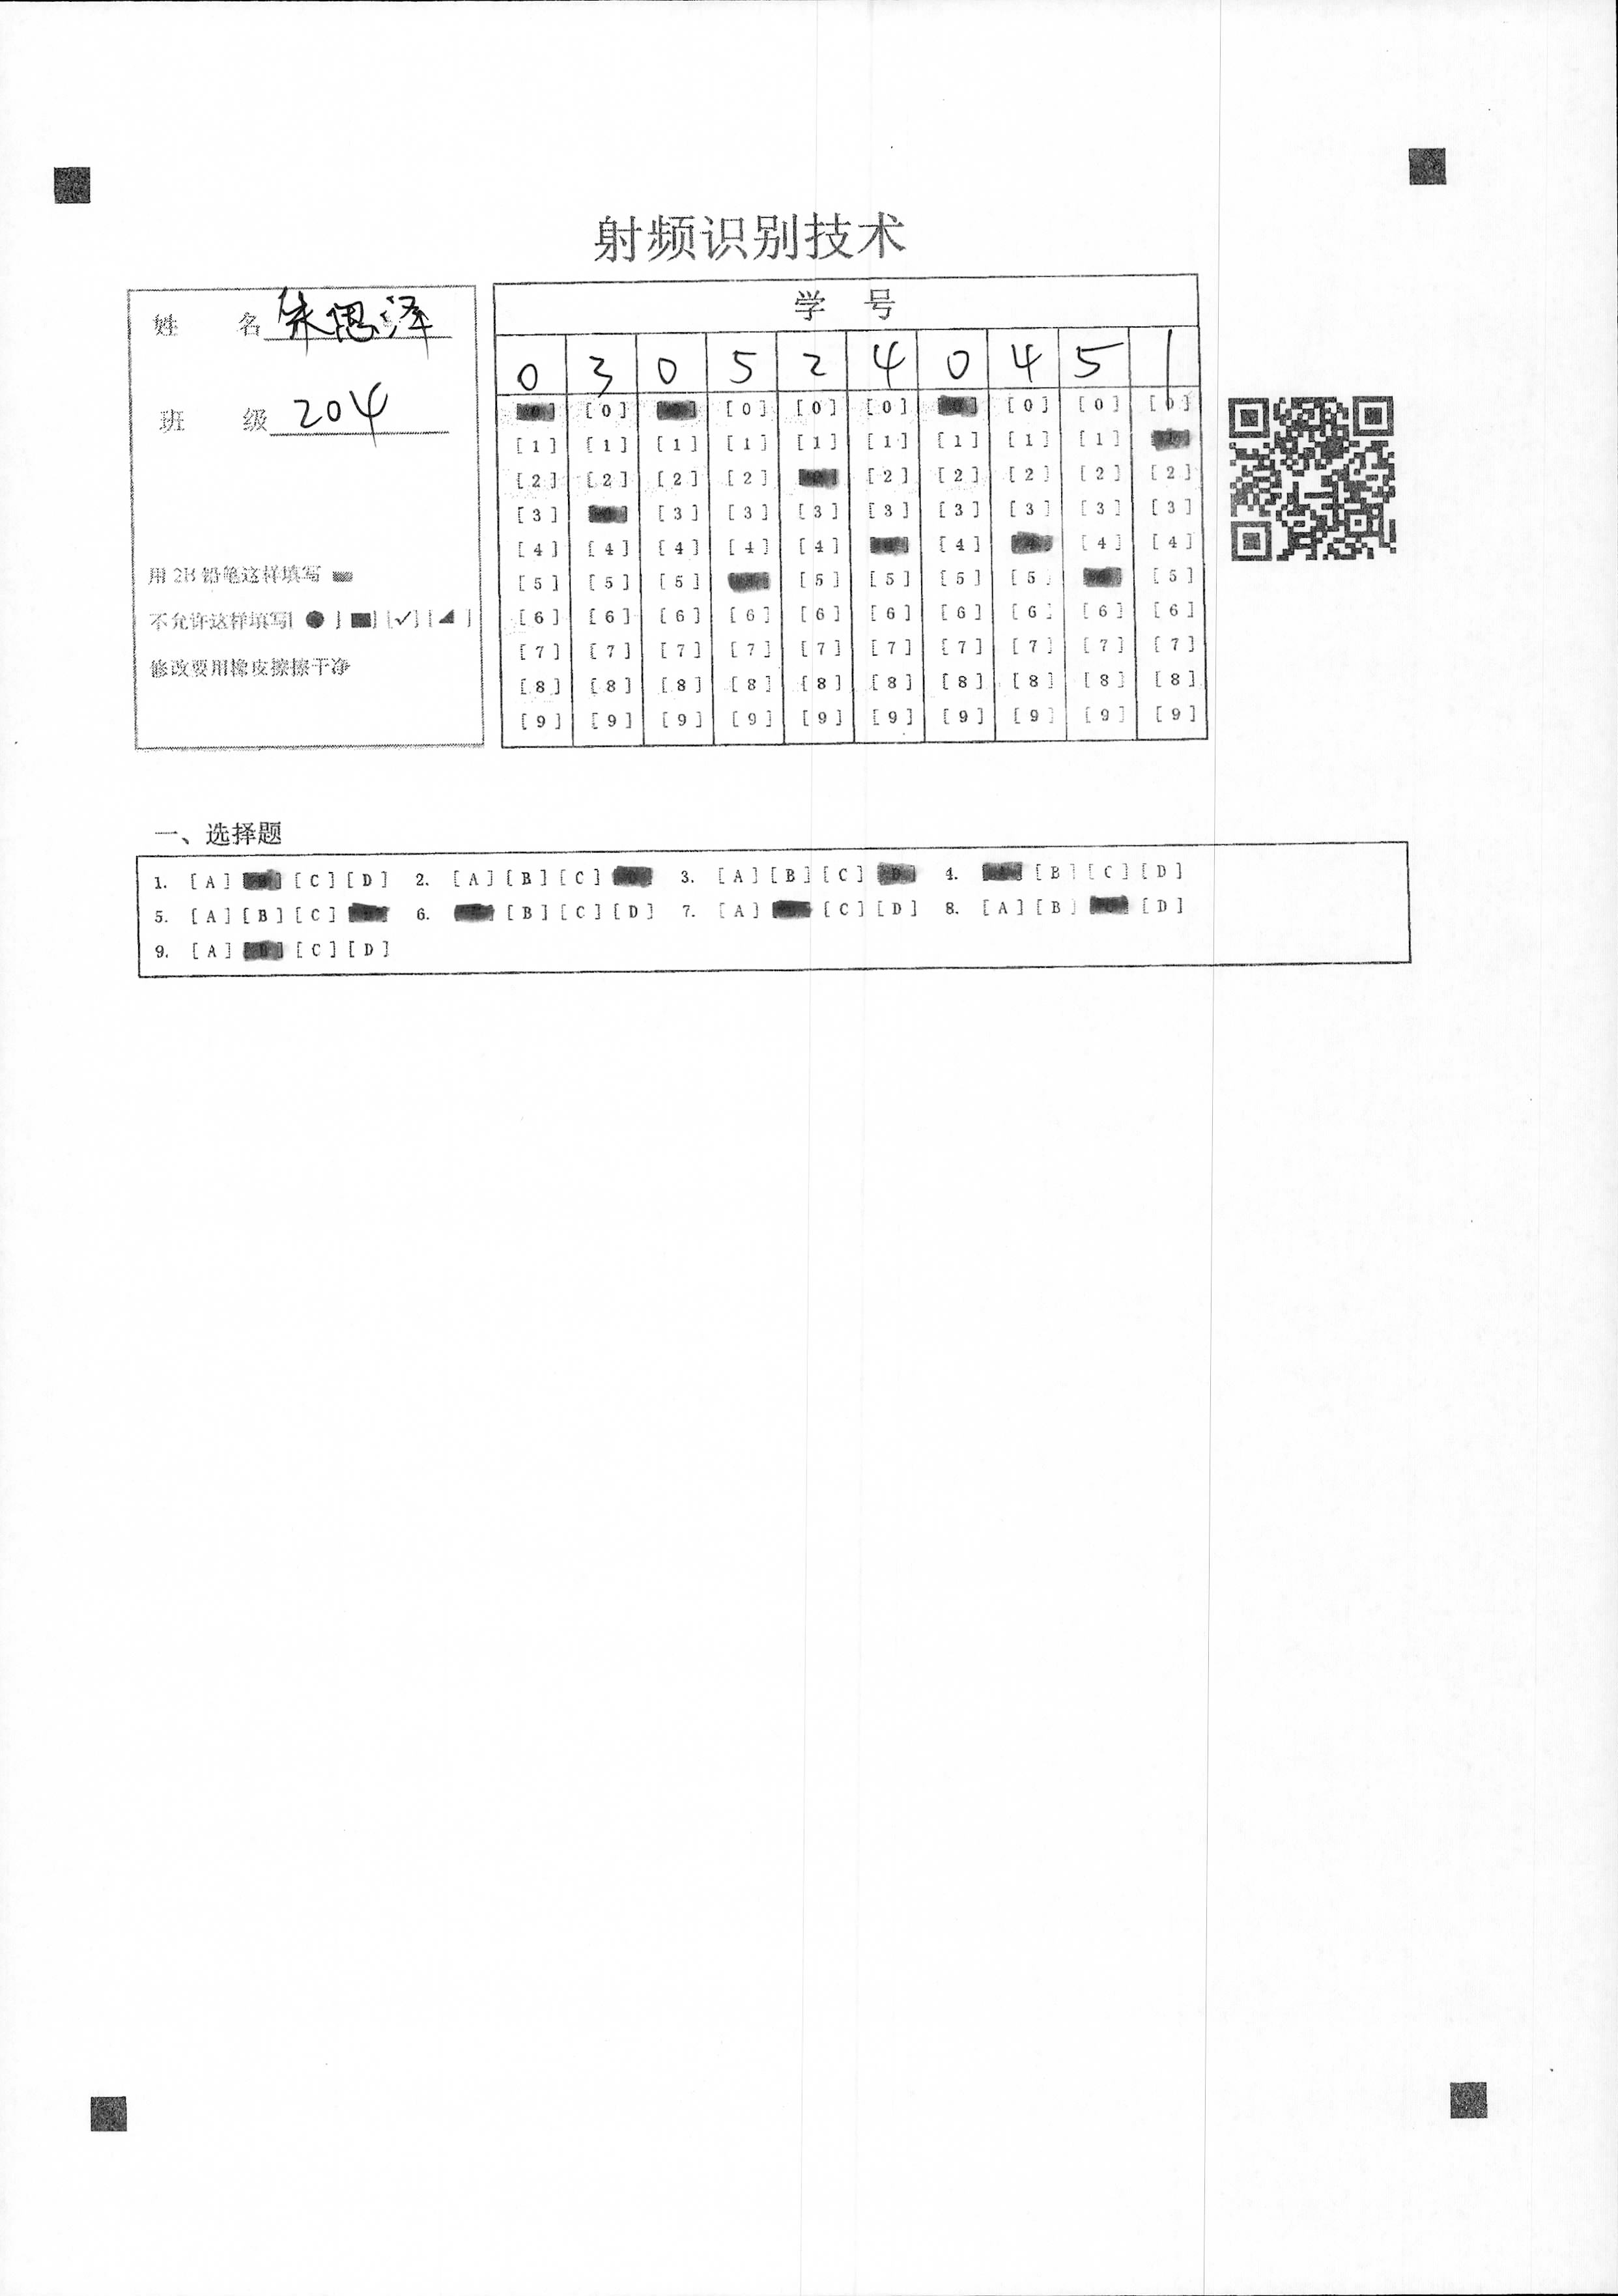 射频识别技术
姓 名 朱思泽
班 级 204
用 2B 铅笔这样填写
不允许这样填写[ ● ] [■] [✓] [◢ ]
修改要用橡皮擦擦干净
学 号
0 3 0 5 2 4 0 4 5 1
[0] [0] [0] [0] [0] [0] [0]
[1] [1] [1] [1] [1] [1] [1] [1] [1]
[2] [2] [2] [2] [2] [2] [2] [2] [2]
[3] [3] [3] [3] [3] [3] [3] [3] [3]
[4] [4] [4] [4] [4] [4] [4] [4]
[5] [5] [5] [5] [5] [5] [5] [5]
[6] [6] [6] [6] [6] [6] [6] [6] [6] [6]
[7] [7] [7] [7] [7] [7] [7] [7] [7] [7]
[8] [8] [8] [8] [8] [8] [8] [8] [8] [8]
[9] [9] [9] [9] [9] [9] [9] [9] [9] [9]
一、选择题
1. [A] [B] [C] [D] 2. [A] [B] [C] [D] 3. [A] [B] [C] [D] 4. [A] [B] [C] [D]
5. [A] [B] [C] [D] 6. [A] [B] [C] [D] 7. [A] [B] [C] [D] 8. [A] [B] [C] [D]
9. [A] [B] [C] [D]